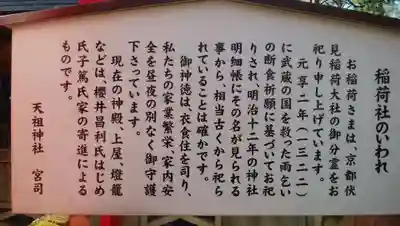 稲荷社のいわれ
お稲荷さまは、京都伏
見稲荷大社の御分霊をお
祀り申し上げています。
元享二年(一三二二)
に武蔵の国を救った雨乞い
の断食祈願に基づいてお祀
りされ、明治十二年の神社
明細帳にその名が見られる
事から相当古くから祀ら
れていることは確かです。
御神徳は、衣食住を司り、
私たちの家業繁栄、家内安
全を昼夜の別なく御守護
下さっています。
現在の神殿、上屋、燈籠
などは、櫻井昌利氏はじめ
氏子篤氏家の寄進による
ものです。
天祖神社 宮司